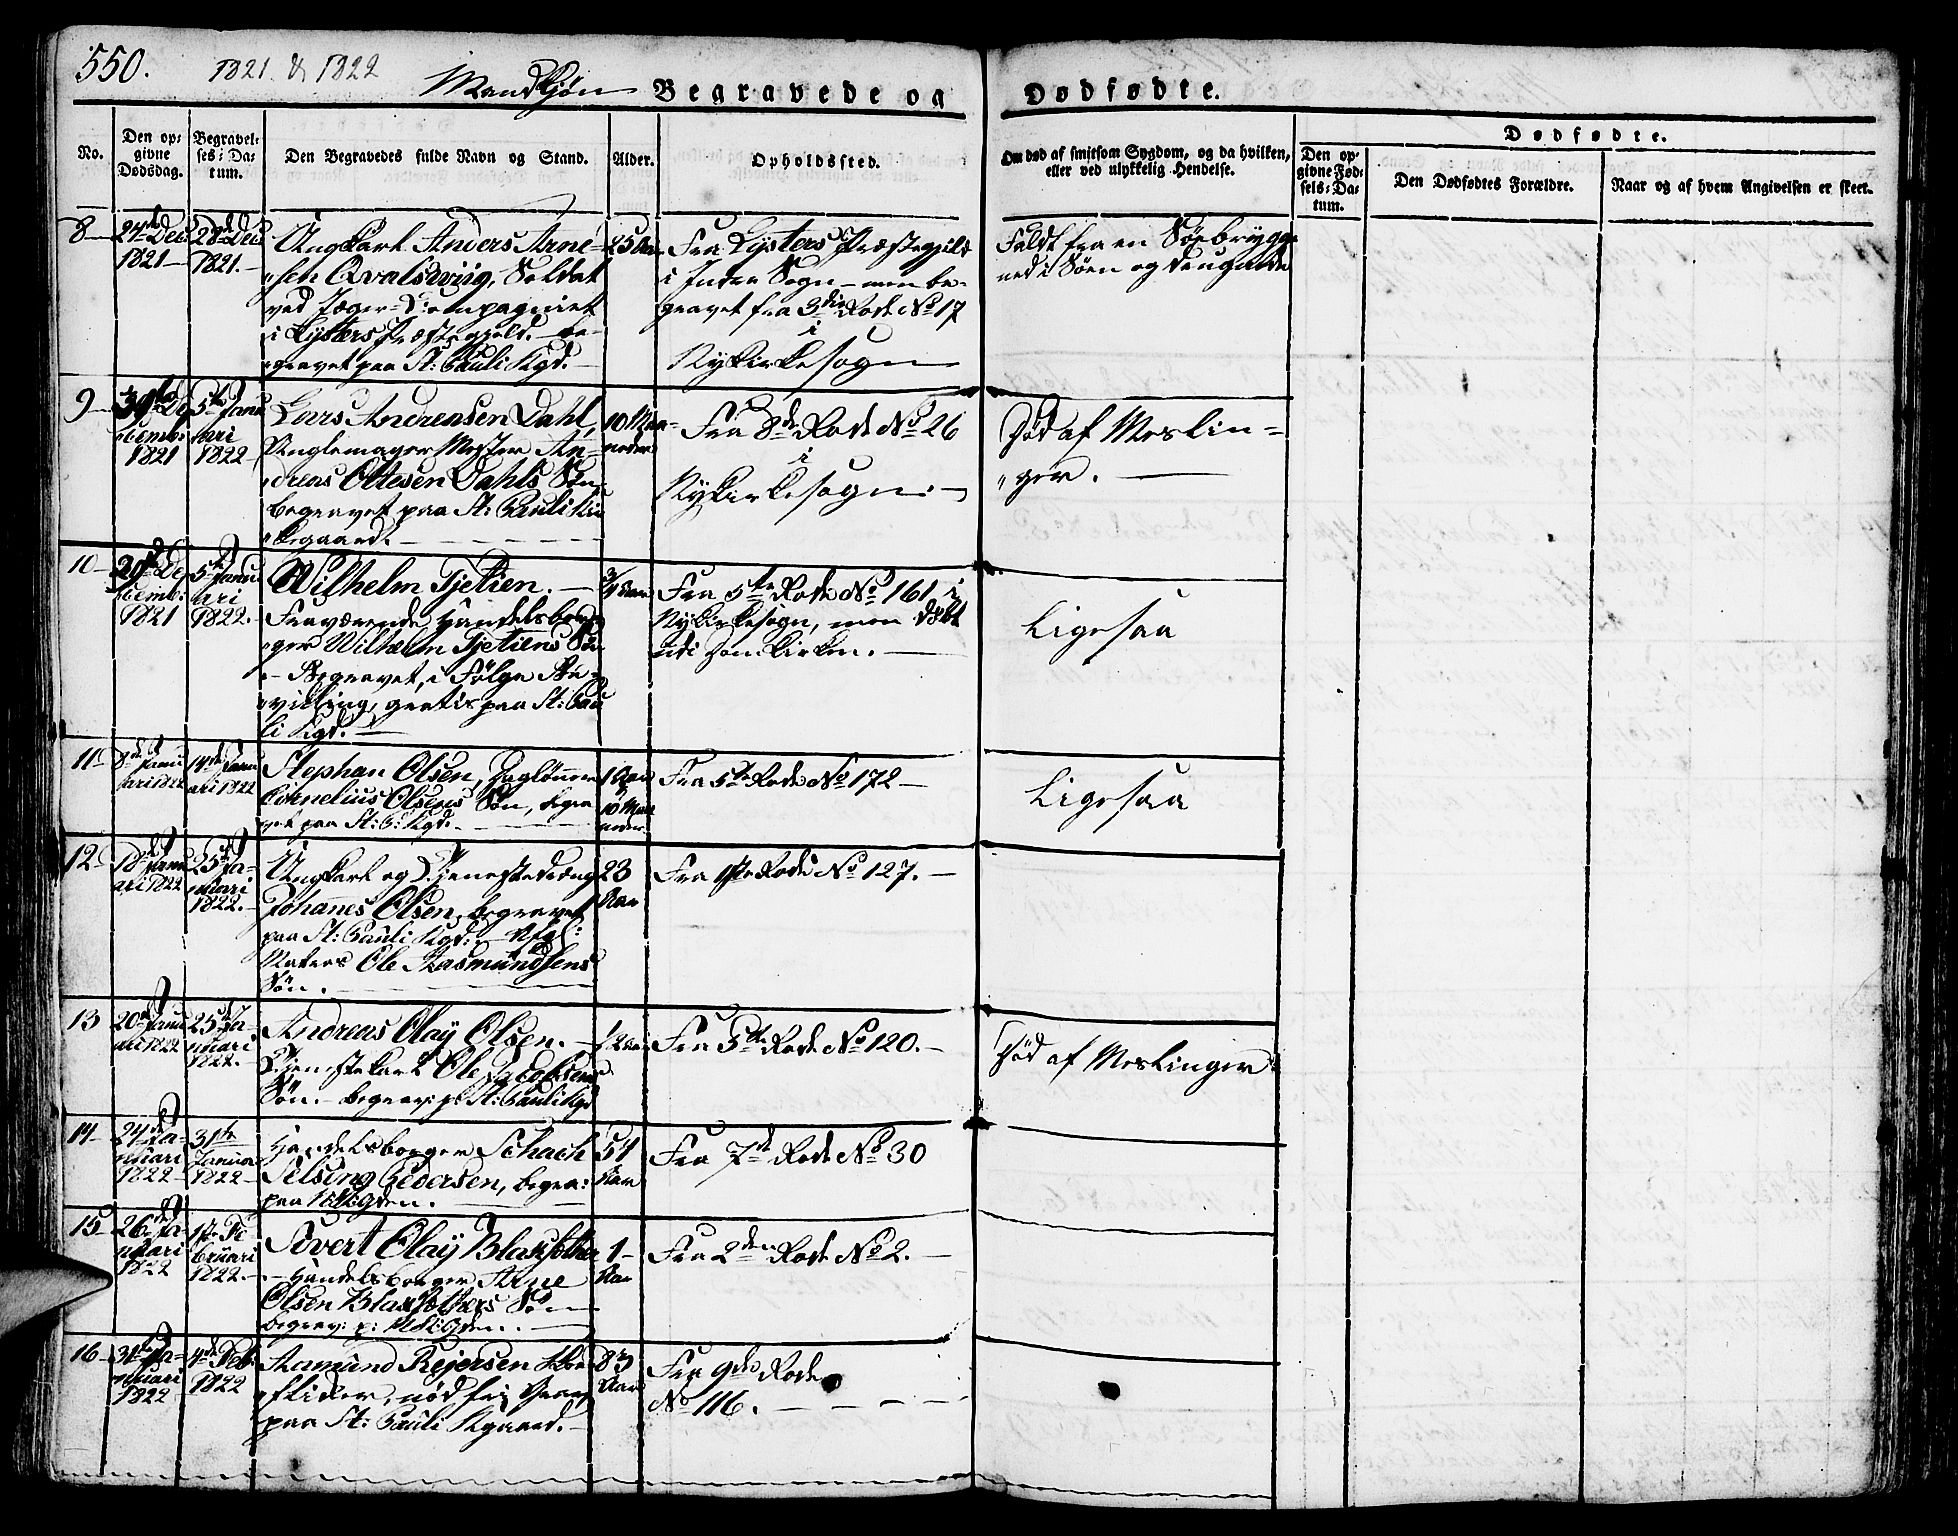 550. 1821. & 1822 Mandkjøn Begravede og Dødfødte.
No.
Den opgivne Dødsdag.
Begravelses-Datum.
Den Begravedes fulde Navn og Stand.
Alder.
Opholdssted.
Om død af smitsom Sygdom, og da hvilken,
eller ved ulykkelig Hendelse.
Dødfødte.
Den opgivne Fødsels-Datum.
Den Dødfødtes Forældre.
Naar og af hvem Angivelsen er skeet.
8
24de Dec
1821
28de Dec
1821.
Ungkarl Anders Arne-
sen Qvalsviig, Soldat
ved Jæger-Compagniet
i Lysters Præstegjeld. be-
gravet paa St: Pauli Kgd.
25 Aar
Fra Lysters Præstegjeld
i Indre Sogn - men be-
gravet fra 3die Rode No 17
i
Nykirkesogn
Faldt fra en Søebrygge
ned i Søen og druknede
9
De
cembr
1821
5te Janu
ari
1822
Lars Andreasen Dahl,
Mester An-
dreas Ottesen Dahls Søn
begravet paa St: Pauli Kir
kegaard.
10 Maa-
neder
Fra 8de Rode No 26
i
Nykirkesogn
Død af Meslin-
ger.
10
29de De
cemb:
1821
5te Janu
ari
1822.
Wilhelm Tjetien.
Fraværende Handelsbor
ger Wilhelm Tjetiens Søn
- Begravet, i Følge Be-
villing, gratis paa St: Pau
li Kgd.
3/4 Aar
Fra 5te Rode No 161 i
Nykirkesogn, men døbt
udi Domkirken.
Ligesaa
11
8de Janu
ari 1822
14de Janu
ari 1822
Stephan Olsen, Dagleønner
Cornelius Olsens Søn, begra
vet paa St: P: Kgd.
1 Aar
10 Maa
neder
Fra 5te Rode No 172
Ligesaa
12
18de Janu
ari 1822
25de Ja-
nuari
1822.
Ungkarl og Tjenestedreng
Johanes Olsen, begravet
paa St: Pauli Kgd:
Ole Aasmundsens
Søn.
23
Aar
Fra 1ste Rode No 127.
13
20de Janu
ari 1822
25de Ja-
nuari
1822.
Andreas Olay Olsen.
Tjenestekarl Ole Jacobsens
Søn. begrav: p: St: Pauli Kgd
1/2 Aar
Fra 5te Rode No 120.
Død af Meslinger
14
24de Ja-
nuari
1822
31te
Januar
1822
Handelsborger Schach
Selsing Pedersen, begra:
paa
51
Aar
Fra 7de Rode No 30
15
26de Ja-
nuari
1822
1ste Fe
bruari
1822.
Sivert Olay
- Handelsborger Arne
Olsen Søn
begrav: p:
1
Aar
Fra 2den Rode No 2.
16
31te Ja-
nuari
1822
4de Feb:
1822
Aamund Rejersen
paa St: Pauli Kgaard.
83
Aar
Fra 9de Rode
No 116.